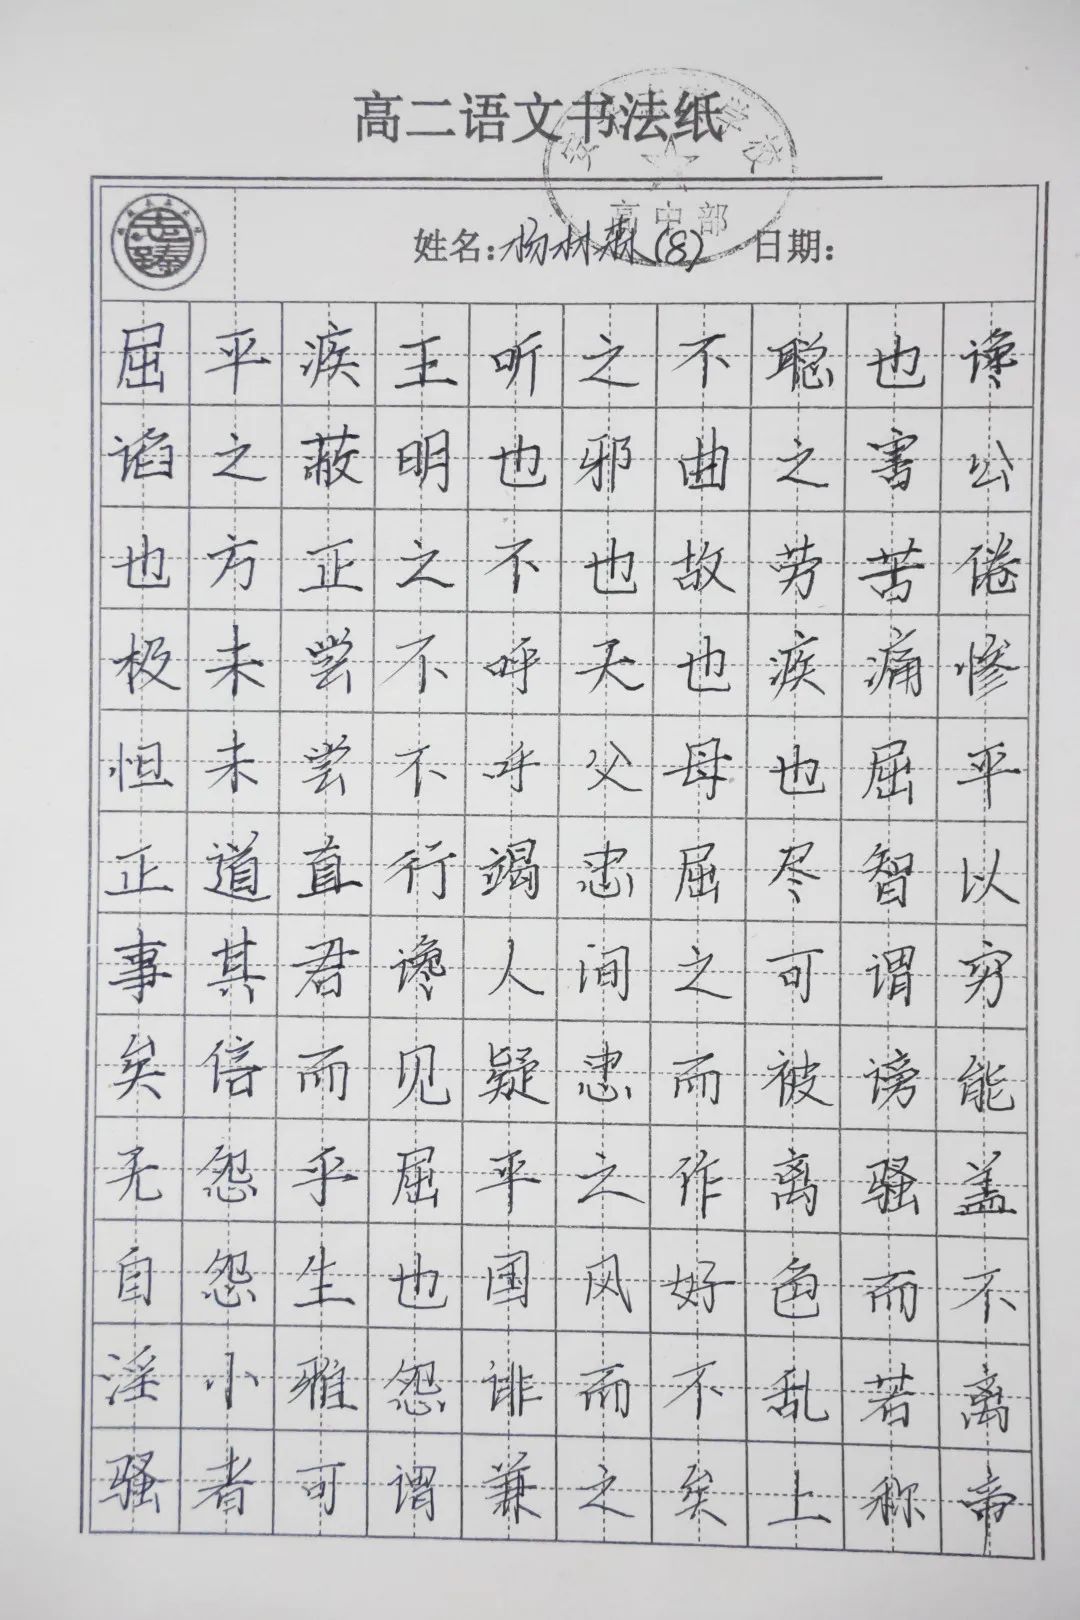 高二语文书法纸
高中部
姓名:杨林森(8) 日期:
屈平疾王听之不聪也谗
谄之蔽明也邪曲之害公
也方正之不也故劳苦倦
极未尝不呼天也疾痛惨
怛未尝不呼父母也屈平
正道直行竭忠屈尽智以
事其君谗人间之可谓穷
矣信而见疑忠而被谤能
无怨乎屈平之作离骚盖
自怨生也国风好色而不
淫小雅怨诽而不乱若离
骚者可谓兼之矣上称帝